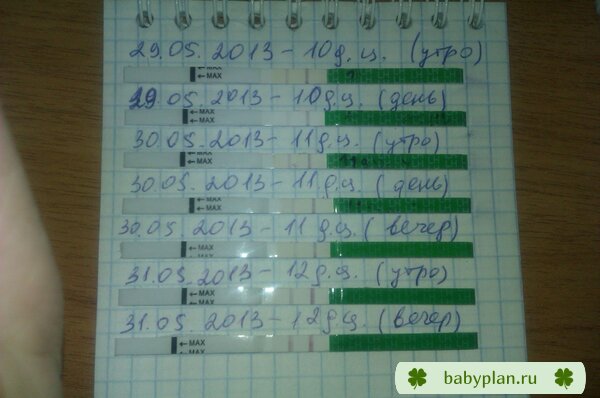 29.05.2013 - 10 д.ц. (утро)
← MAX
← MAX
29.05 2013 - 10 д.ц. (день)
← MAX
← MAX
30.05.2013 - 11 д.ц. (утро)
← MAX
← MAX
30.05 2013 - 11 д.ц. (день)
← MAX
← MAX
30.05.2013 - 11 д.ц. (вечер)
← MAX
31.05.2013 - 12 д.ц. (утро)
← MAX
← MAX
31.05.2013 - 12 д.ц. (вечер)
← MAX
MAX
babyplan.ru